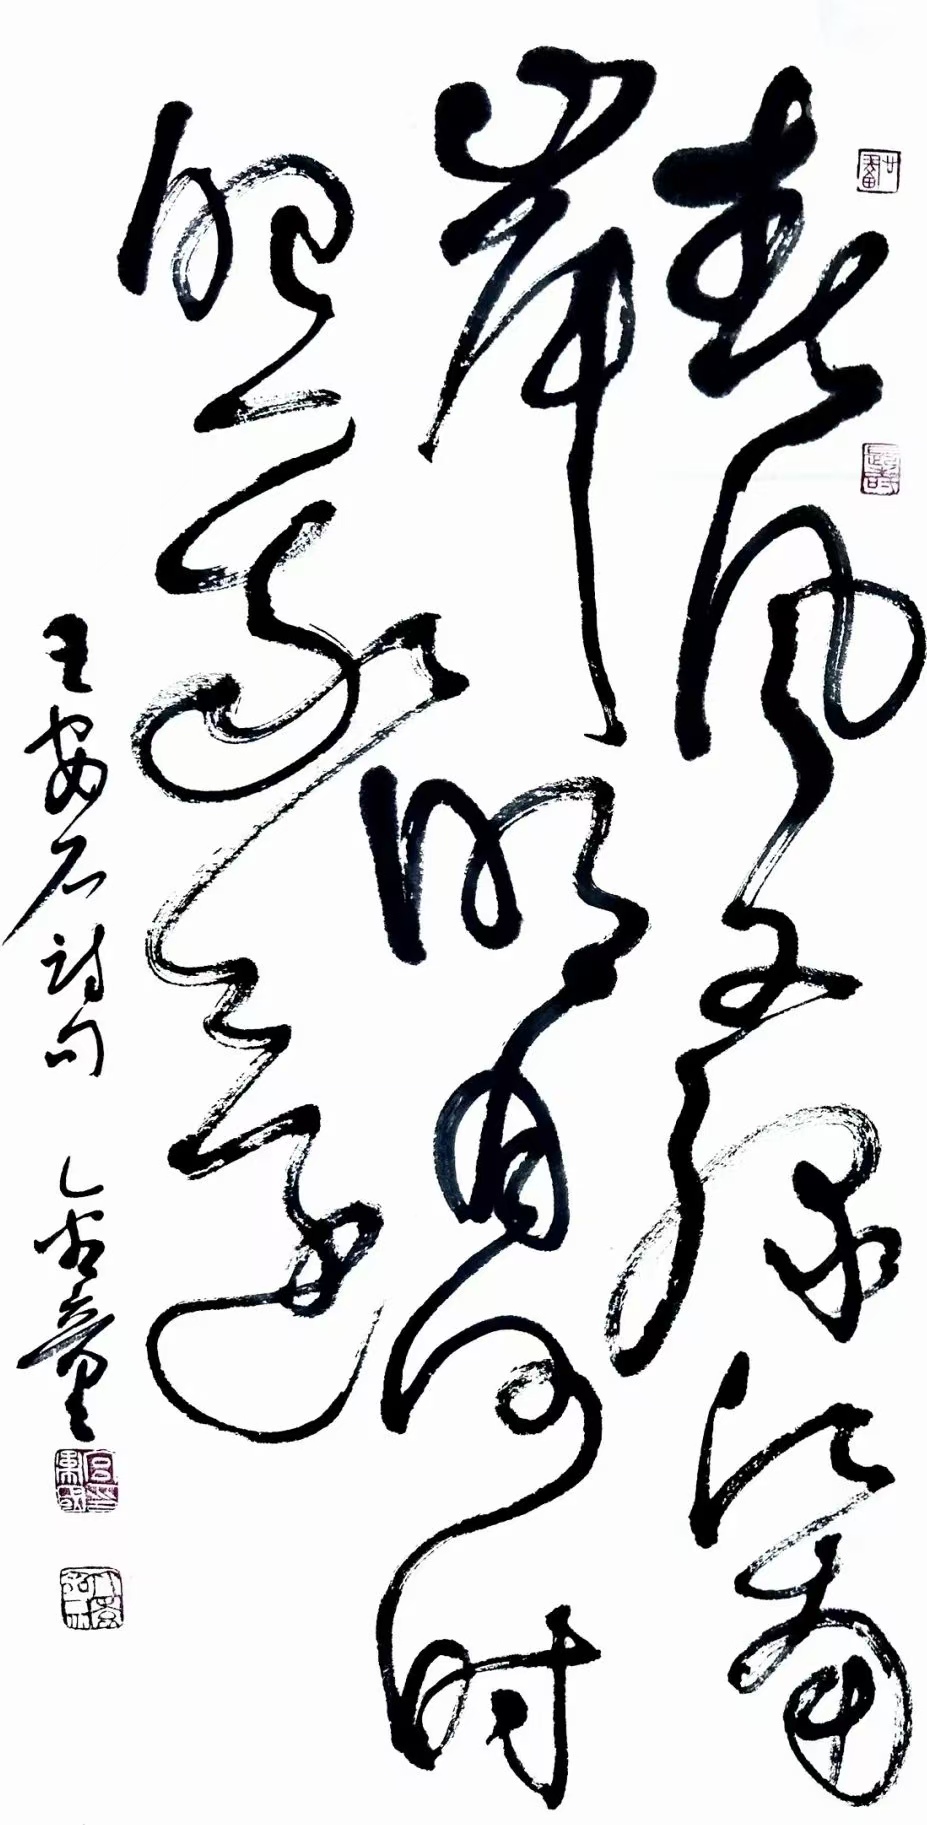 春风又绿江南
岸明月何时
照我还
王安石诗句